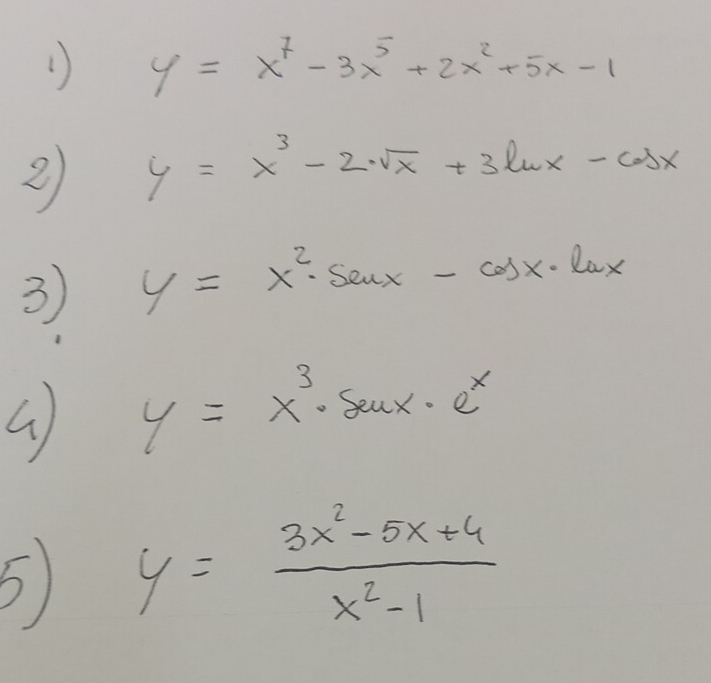 1) y = x⁷ - 3x⁵ + 2x² + 5x - 1
2) y = x³ - 2·√x + 3 lnx - cosx
3) y = x²· senx - cosx · lnx
4) y = x³ · senx · eˣ
5) y = (3x² - 5x + 4) / (x² - 1)